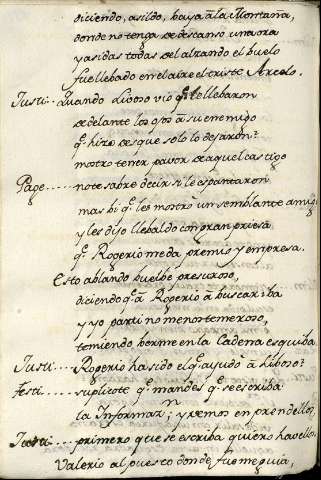 diciendo, asildo, baya a la Montaña,
donde no tenga de descanso una ora
y asidas todas del al alzando el buelo
fue llebado en el aire el triste
Justi... Quando Liboso vio q̃ le llebaron
de delante los ojos a su enemigo
q̃ hizo des que solo lo dejaron?
mostro tener pavor de aquel castigo
Page..... note sabre decir si le espantaron
mas bi q̃ les mostro un semblante amigo
y les dijo llebaldo con gran priesa
q̃ Rogerio me da premio y empresa.
Esto ablando buelbe presuroso,
diciendo q̃ a Rogerio a buscar iba
y yo parti no menos temeroso,
temiendo berme en la Cadena esquiba
Justi... Rogerio ha sido el q̃ ayudo a Liboso?
Festi... suplicote q̃ mandes q̃ se escriba
la Informaz.n y remos en prendellos,
Justi... primero que se escriba quiero havellos.
Valerio al puesto donde fue me guia,